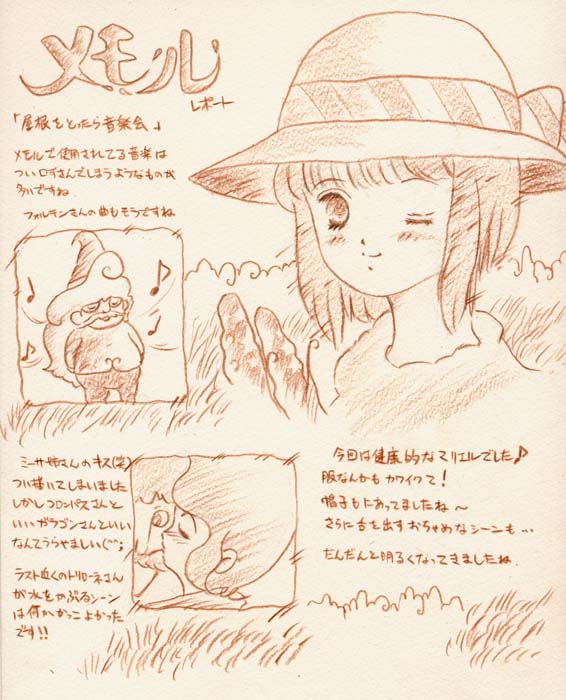 メモル
レポート
「屋根をとったら音楽会」
メモルで使用されてる音楽は
つい口ずさんでしまうようなものが
多いですね
フォルテンさんの曲もモラですね
ミーサ姉さんのキス(笑)
つい描いてしまいました
しかしコロンパスさんと
いいガラゴンさんといい
なんてうらやましい(^^;
ラスト近くのトリローネさん
が水をかぶるシーン
は何かかっこよかった
です!!
今回は健康的なマリエルでした♪
服なんかもカワイクて!
帽子もにあってましたね〜
さらに舌を出すおちゃめなシーンも…
だんだんと明るくなってきましたね